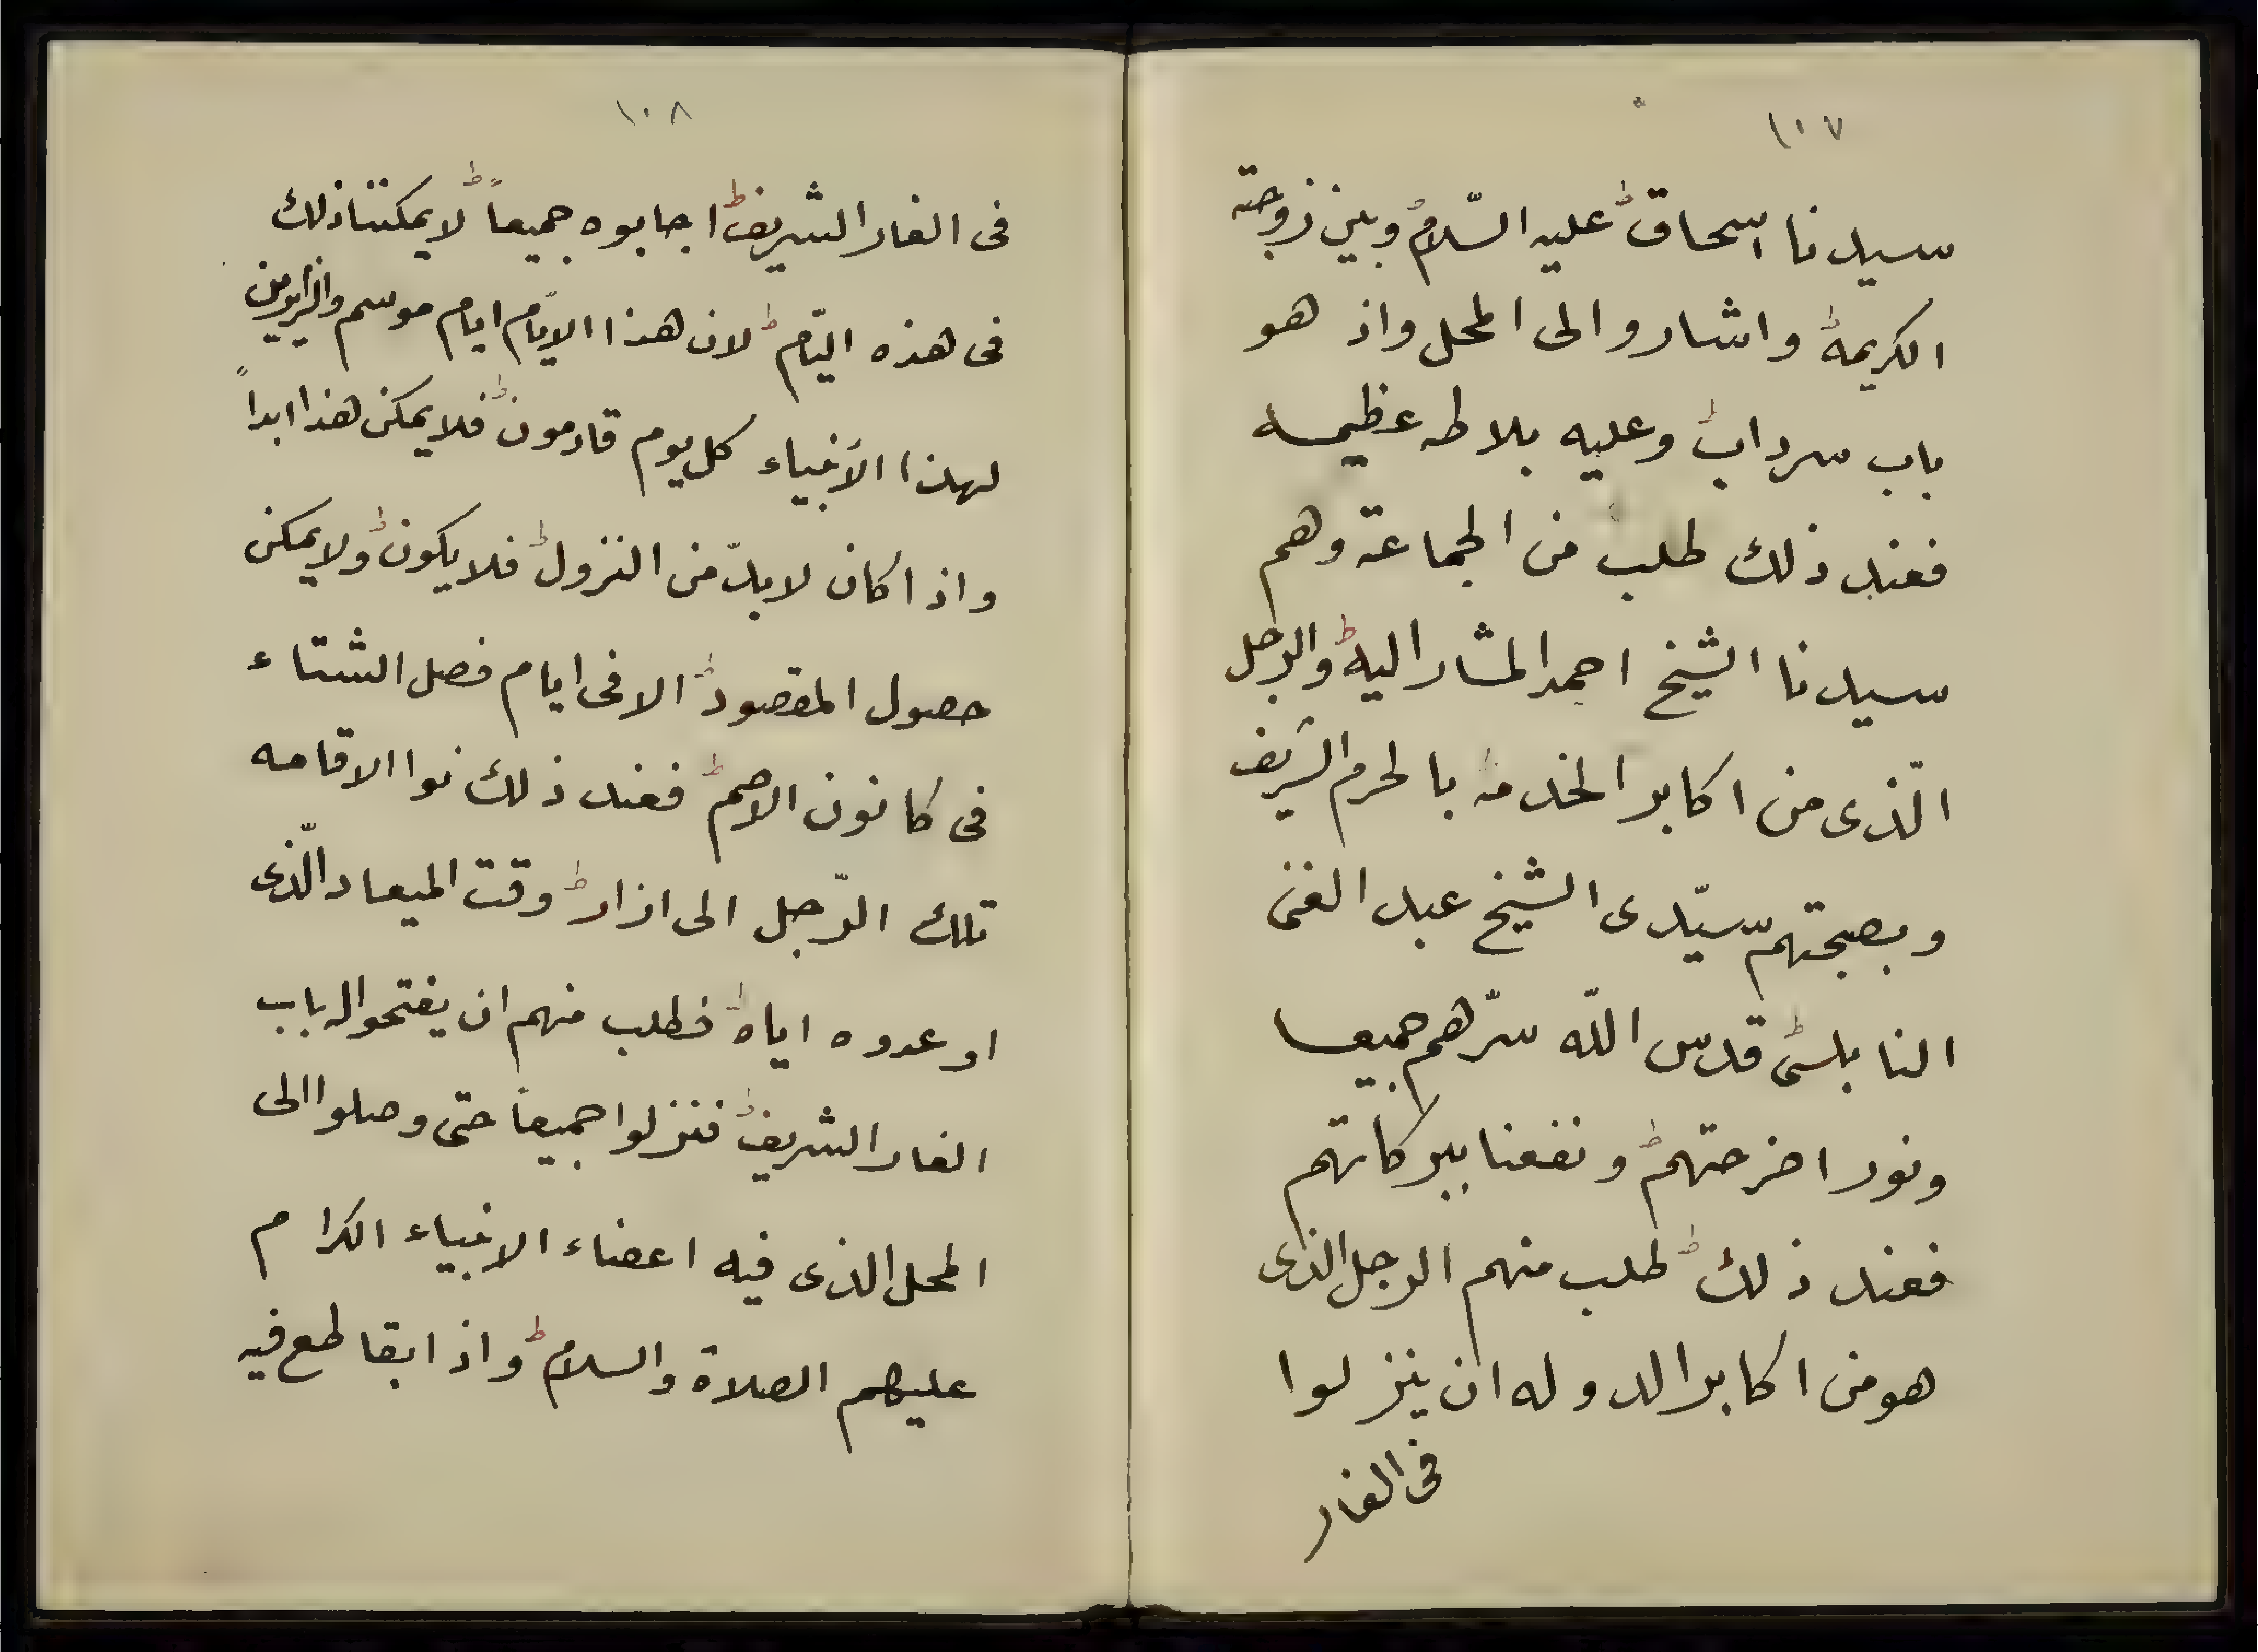 ١٠٧
سيدنا اسحاق عليه السّلام وبين زوجته
الكريمة واشاروا الى المحل واذ هو
باب سرداب وعليه بلاطه عظيمه
فعند ذلك طلب من الجماعة وهم
سيدنا الشيخ احمد المشار اليه والرجل
الّذى من اكابر الخدمة بالحرم الشريف
وبصحبتهم سيّدى الشيخ عبد الغنى
النابلسى قدس اللّه سرّهم جميعا
ونور اضرحتهم ونفعنا ببركاتهم
فعند ذلك طلب منهم الرجل الذى
هو من اكابر الدوله ان ينزلوا
فى الغار
١٠٨
فى الغار الشريف اجابوه جميعاً لا يمكننا ذلك
فى هذه اليّام لان هذا الايّام ايام موسم والزايرين
لهذا الأنبياء كل يوم قادمون فلا يمكن هذا ابداً
واذا كان لا بدّ من النزول فلا يكون ولا يمكن
حصول المقصود الا فى ايام فصل الشتاء
فى كانون الاصم فعند ذلك نوا الاقامه
تلك الرّجل الى ازار وقت الميعاد الّذى
اوعدوه اياه فطلب منهم ان يفتحوا له باب
الغار الشريف فنزلوا جميعا حتى وصلوا الى
المحل الذى فيه اعضاء الانبياء الكرام
عليهم الصلاة والسلام واذ ابقا طمع فيه